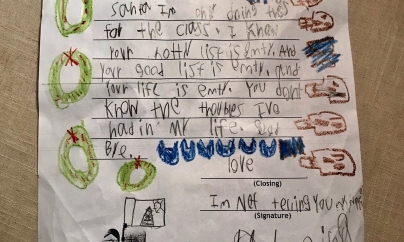 Santa Im only doing this
for the class. I know
your notty list is emty. And
your good list is emty. and
your life is emty. You dont
know the troubles Ive
had in My life. Good
Bye.
love
(Closing)
Im Not telling you my name
(Signature)